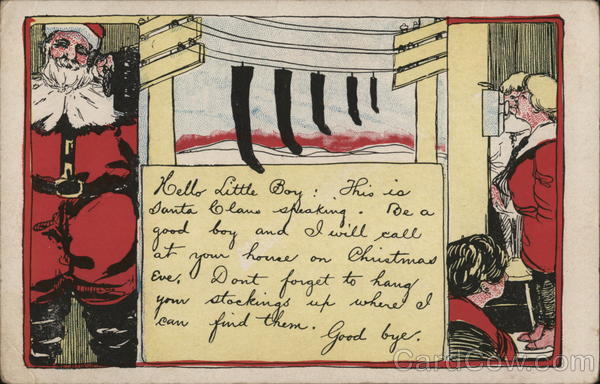 Hello Little Boy: This is
Santa Claus speaking. Be a
good boy and I will call
at your house on Christmas
Eve. Dont forget to hang
your stockings up where I
can find them. Good bye.
CardCow.com